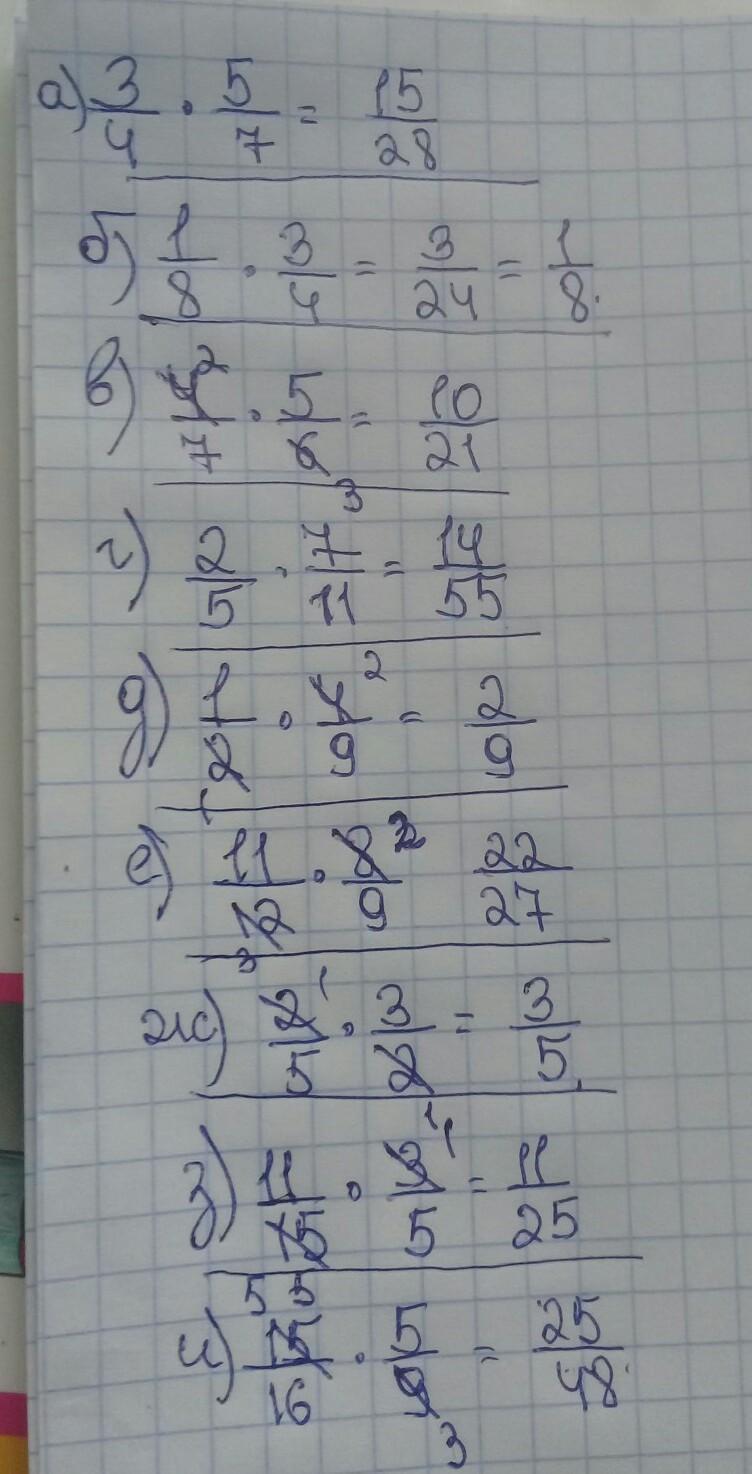 а) 3/4 · 5/7 = 15/28
б) 1/8 · 3/4 = 3/24 = 1/8.
в) 4 2/7 · 5/6 3 = 10/21
г) 2/5 · 7/11 = 14/55
д) 1/2 1 · 4 2/9 = 2/9
е) 11/12 3 · 8 2/9 22/27
ж) 2 1/5 · 3/2 1 = 3/5
з) 11/15 5 · 3 1/5 = 11/25
и) 15 5/16 · 5/9 3 = 25/48